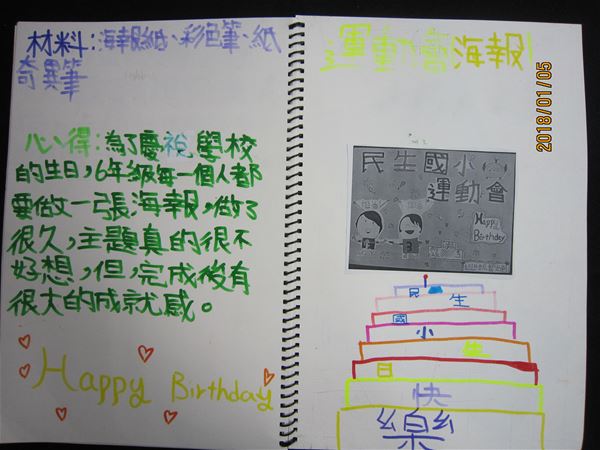 材料：海報紙、彩色筆、紙
奇異筆
心得：為了慶祝學校
的生日，6年級每一個人都
要做一張海報，做了
很久，主題真的很不
好想，但，完成後有
很大的成就感。
Happy Birthday
運動會海報
2018/01/05
民生國小
運動會
Happy
Birthday
民生
國小生
日
快
樂